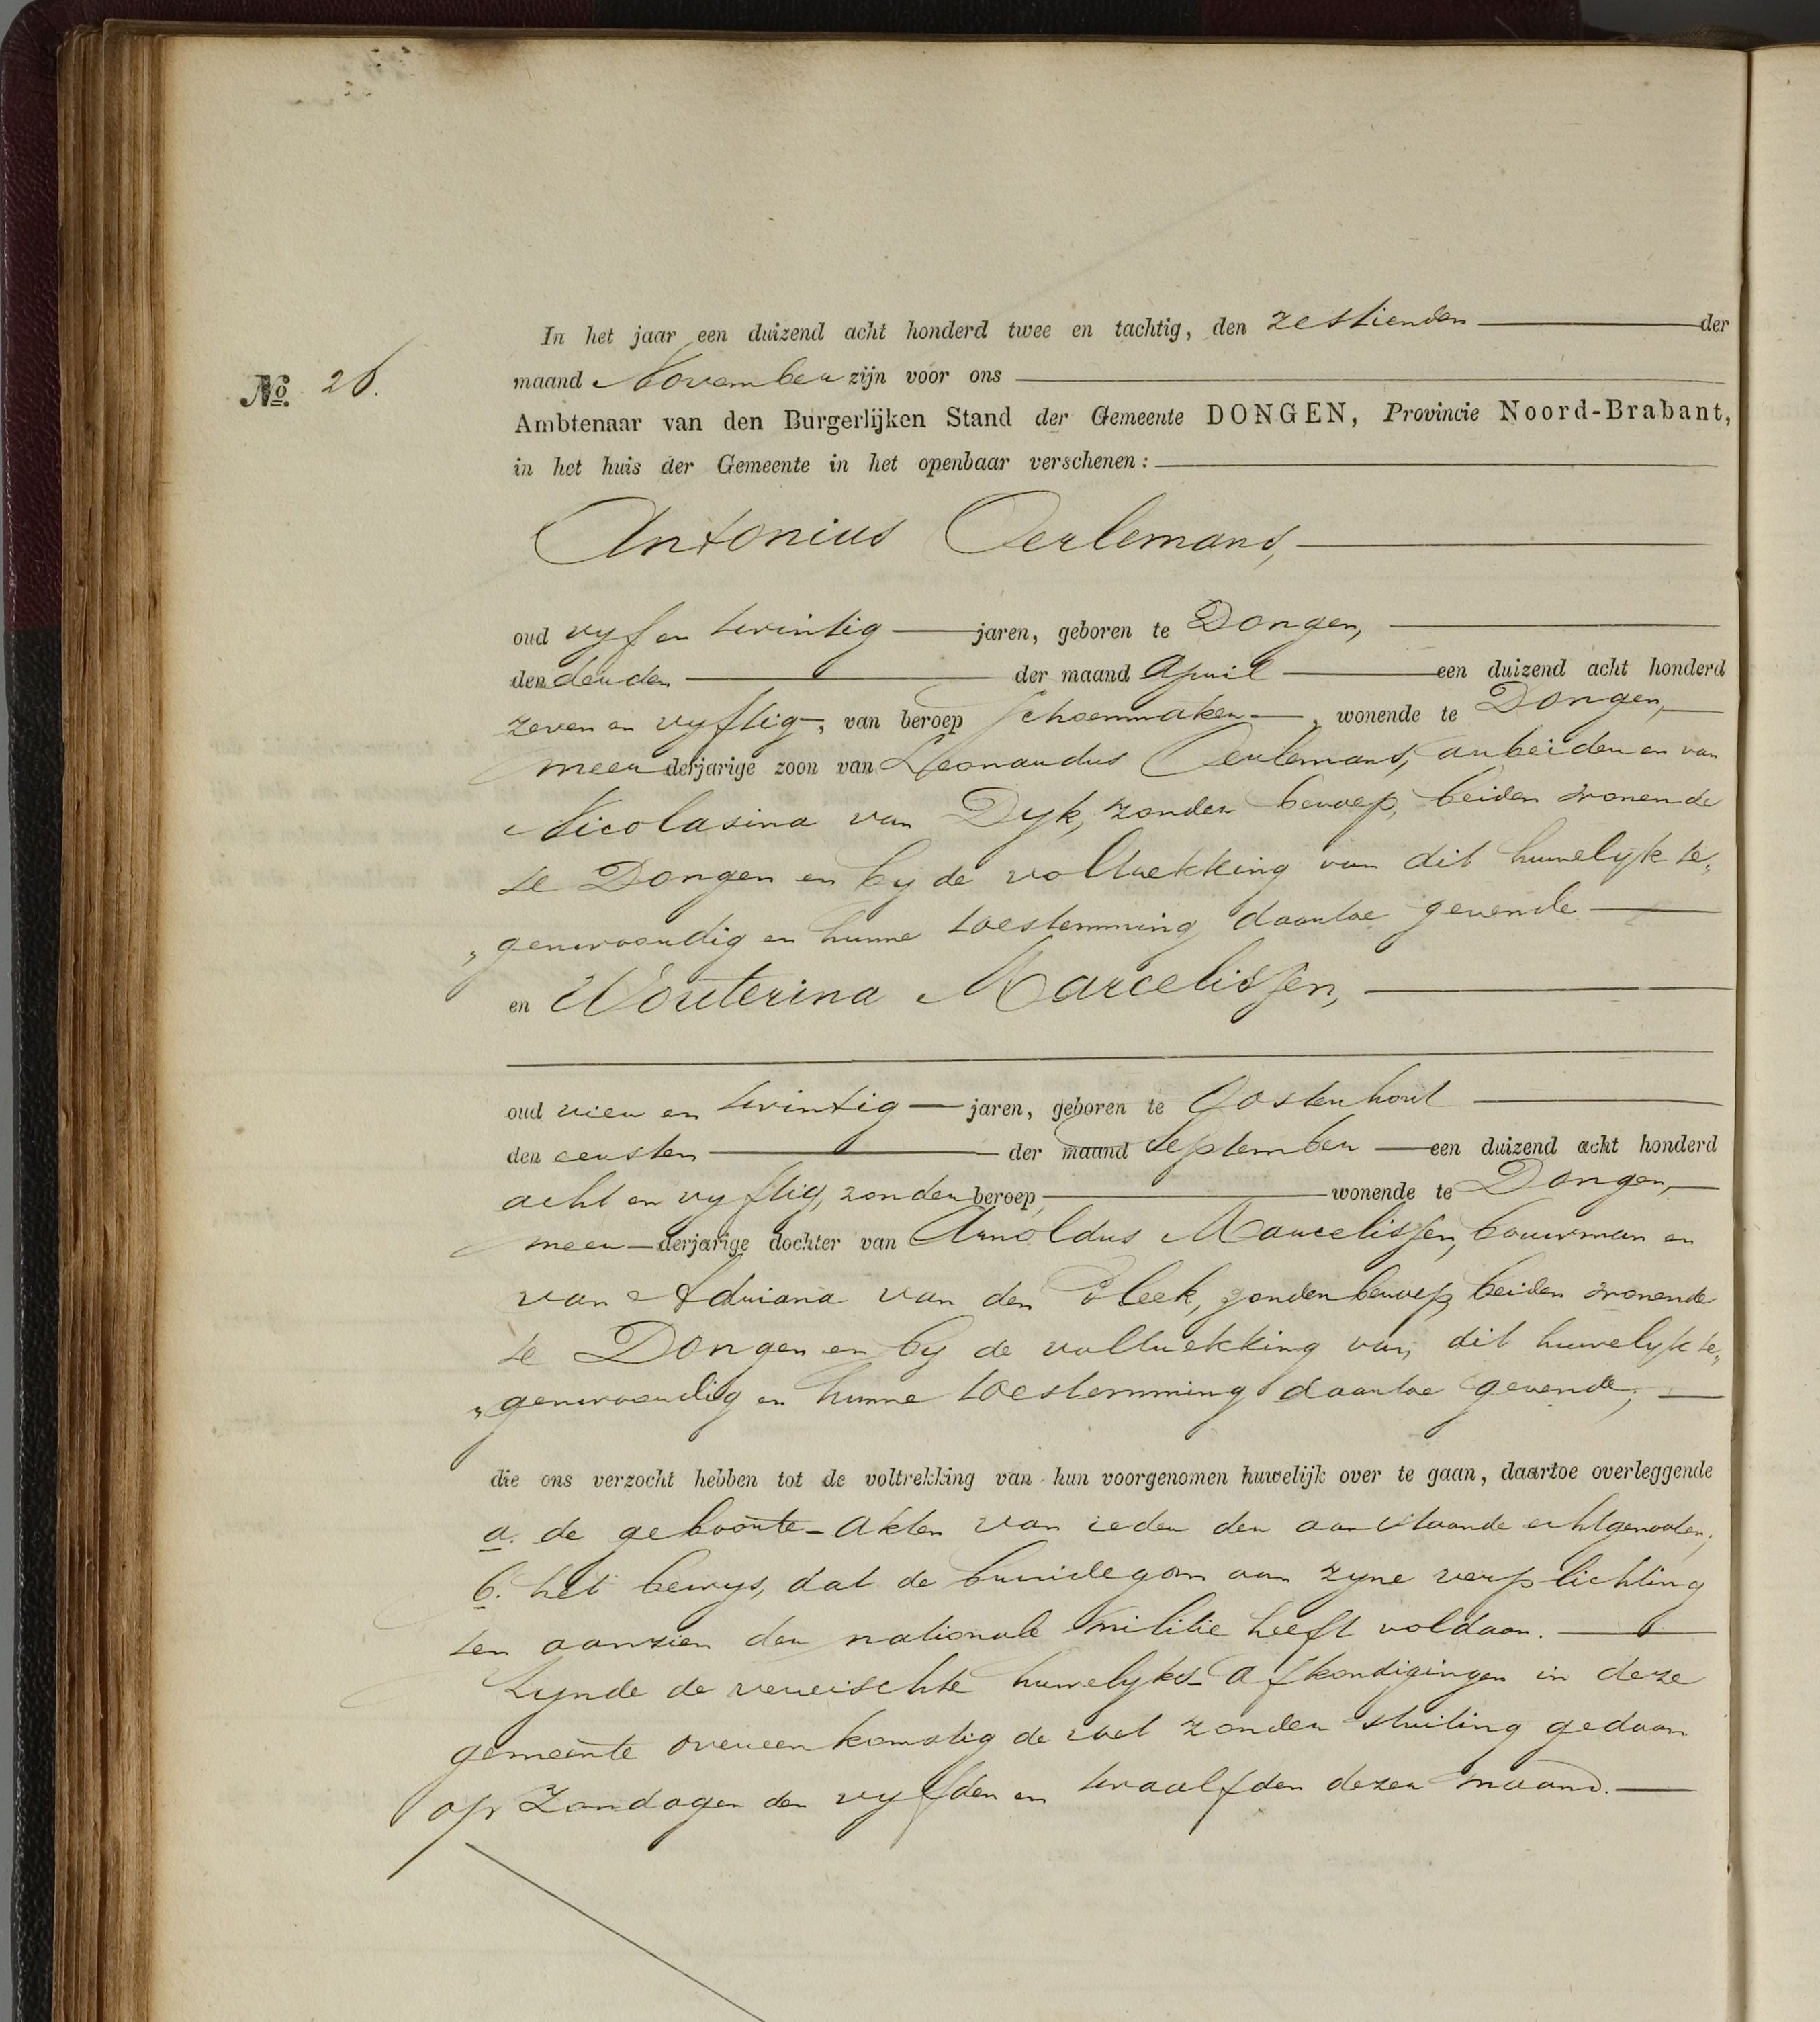 In het jaar een duizend acht honderd twee en tachtig, den zestienden der
No. 26. maand November zijn voor ons
Ambtenaar van den Burgerlijken Stand der Gemeente DONGEN, Provincie Noord-Brabant,
in het huis der Gemeente in het openbaar verschenen:
Antonius Oerlemans,
oud vyf en twintig jaren, geboren te Dongen,
den derden der maand April een duizend acht honderd
zeven en vyftig, van beroep schoenmaker, wonende te Dongen,
meerderjarige zoon van Leonardus Oerlemans, arbeider en van
Nicolasina van Dyk, zonder beroep, beiden wonende
te Dongen en by de voltrekking van dit huwelyk te„
„genwoordig en hunne toestemming daartoe gevende
en Wouterina Marcelissen,
oud vier en twintig jaren, geboren te Oosterhout
den eersten der maand September een duizend acht honderd
acht en vyftig, zonder beroep, wonende te Dongen,
meerderjarige dochter van Arnoldus Marcelissen, bouwman en
van Adriana van den Bleek, zonder beroep, beiden wonende
te Dongen en by de voltrekking van dit huwelyk te„
„genwoordig en hunne toestemming daartoe gevende,
die ons verzocht hebben tot de voltrekking van hun voorgenomen huwelijk over te gaan, daartoe overleggende
a. de geboorte-akten van ieder der aanstaande echtgenooten;
b. het bewys, dat de bruidegom aan zyne verplichting
ten aanzien der nationale militie heeft voldaan.
Zynde de vereischte huwelyks-afkondigingen in deze
gemeente overeenkomstig de wet zonder stuiting gedaan
op Zondagen den vyfden en twaalfden dezer maand.